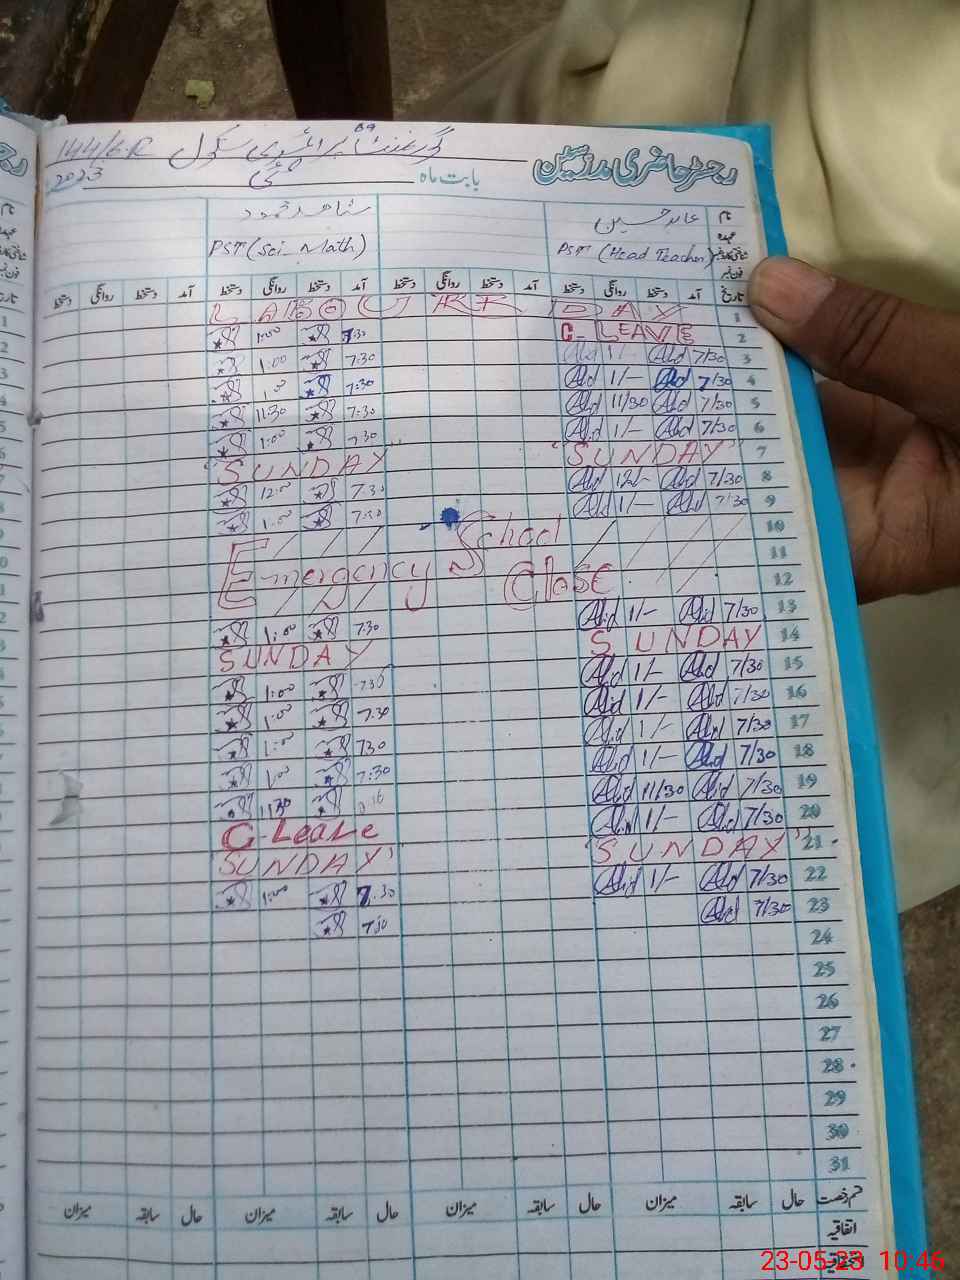 رجسٹر حاضری مدرسین
گورنمنٹ پرائمری سکول 144/6.R
بابت ماہ مئی 2023
نام عابد حسین شاہد محمود
عہدہ PST (Head Teacher) PST (Sci-Math)
فون نمبر
تاریخ آمد دستخط روانگی دستخط آمد دستخط روانگی دستخط آمد دستخط روانگی دستخط آمد روانگی دستخط
1 LABOUR DAY
2 C-LEAVE 7:30 1:00
3 7/30 Abd 1/- Abd 7:30 1:00
4 7/30 Abd 1/- Abd 7:30
5 7/30 Abd 11/30 Abd 7:30 11:30
6 7/30 Abd 1/- Abd 7:30 1:00
7 "SUNDAY" "SUNDAY"
8 7/30 Abd 12/- Abd 7:30 12:00
9 7/30 Abd 1/- Abd 7:30 1:00
10
11 Emergency School Close
12
13 7/30 Abd 1/- Abd 7:30 1:00
14 SUNDAY SUNDAY
15 7/30 Abd 1/- Abd 7:30 1:00
16 7/30 Abd 1/- Abd 7:30 1:00
17 7/30 Abd 1/- Abd 7:30 1:00
18 7/30 Abd 1/- Abd 7:30 1:00
19 7/30 Abd 11/30 Abd 11:30
20 7/30 Abd 1/- Abd C-Leave
21 "SUNDAY" SUNDAY"
22 7/30 Abd 1/- Abd 7:30 1:00
23 7/30 Abd 7:30
24
25
26
27
28
29
30
31
قسم رخصت حال سابقہ میزان حال سابقہ میزان حال سابقہ میزان حال سابقہ میزان
اتفاقیہ
23-05-23 10:46